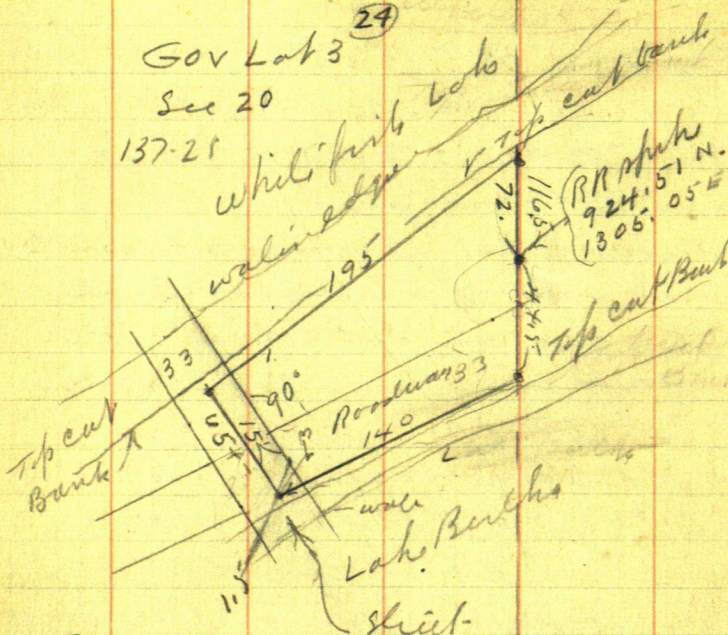 24
Gov Lot 3
Sec 20
137-28
White fish Lake
water edge
Top cut bank
72.
116.5
RR Spike
924.51 N.
1305.05 E
195
44.5
Top cut Bank
33
90°
Roadway 33
140
Top cut
Bank
15
wall
Lake Bertha
1.5